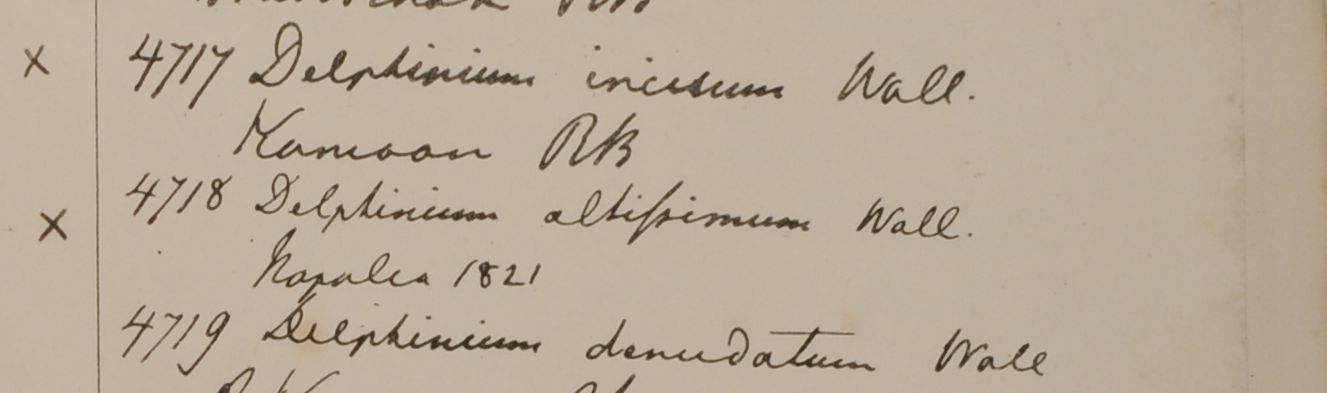 x 4717 Delphinium incisum Wall.
Kamoon RB
4718 Delphinium altissimum Wall.
x
Napalia 1821
4719 Delphinium denudatum Wall